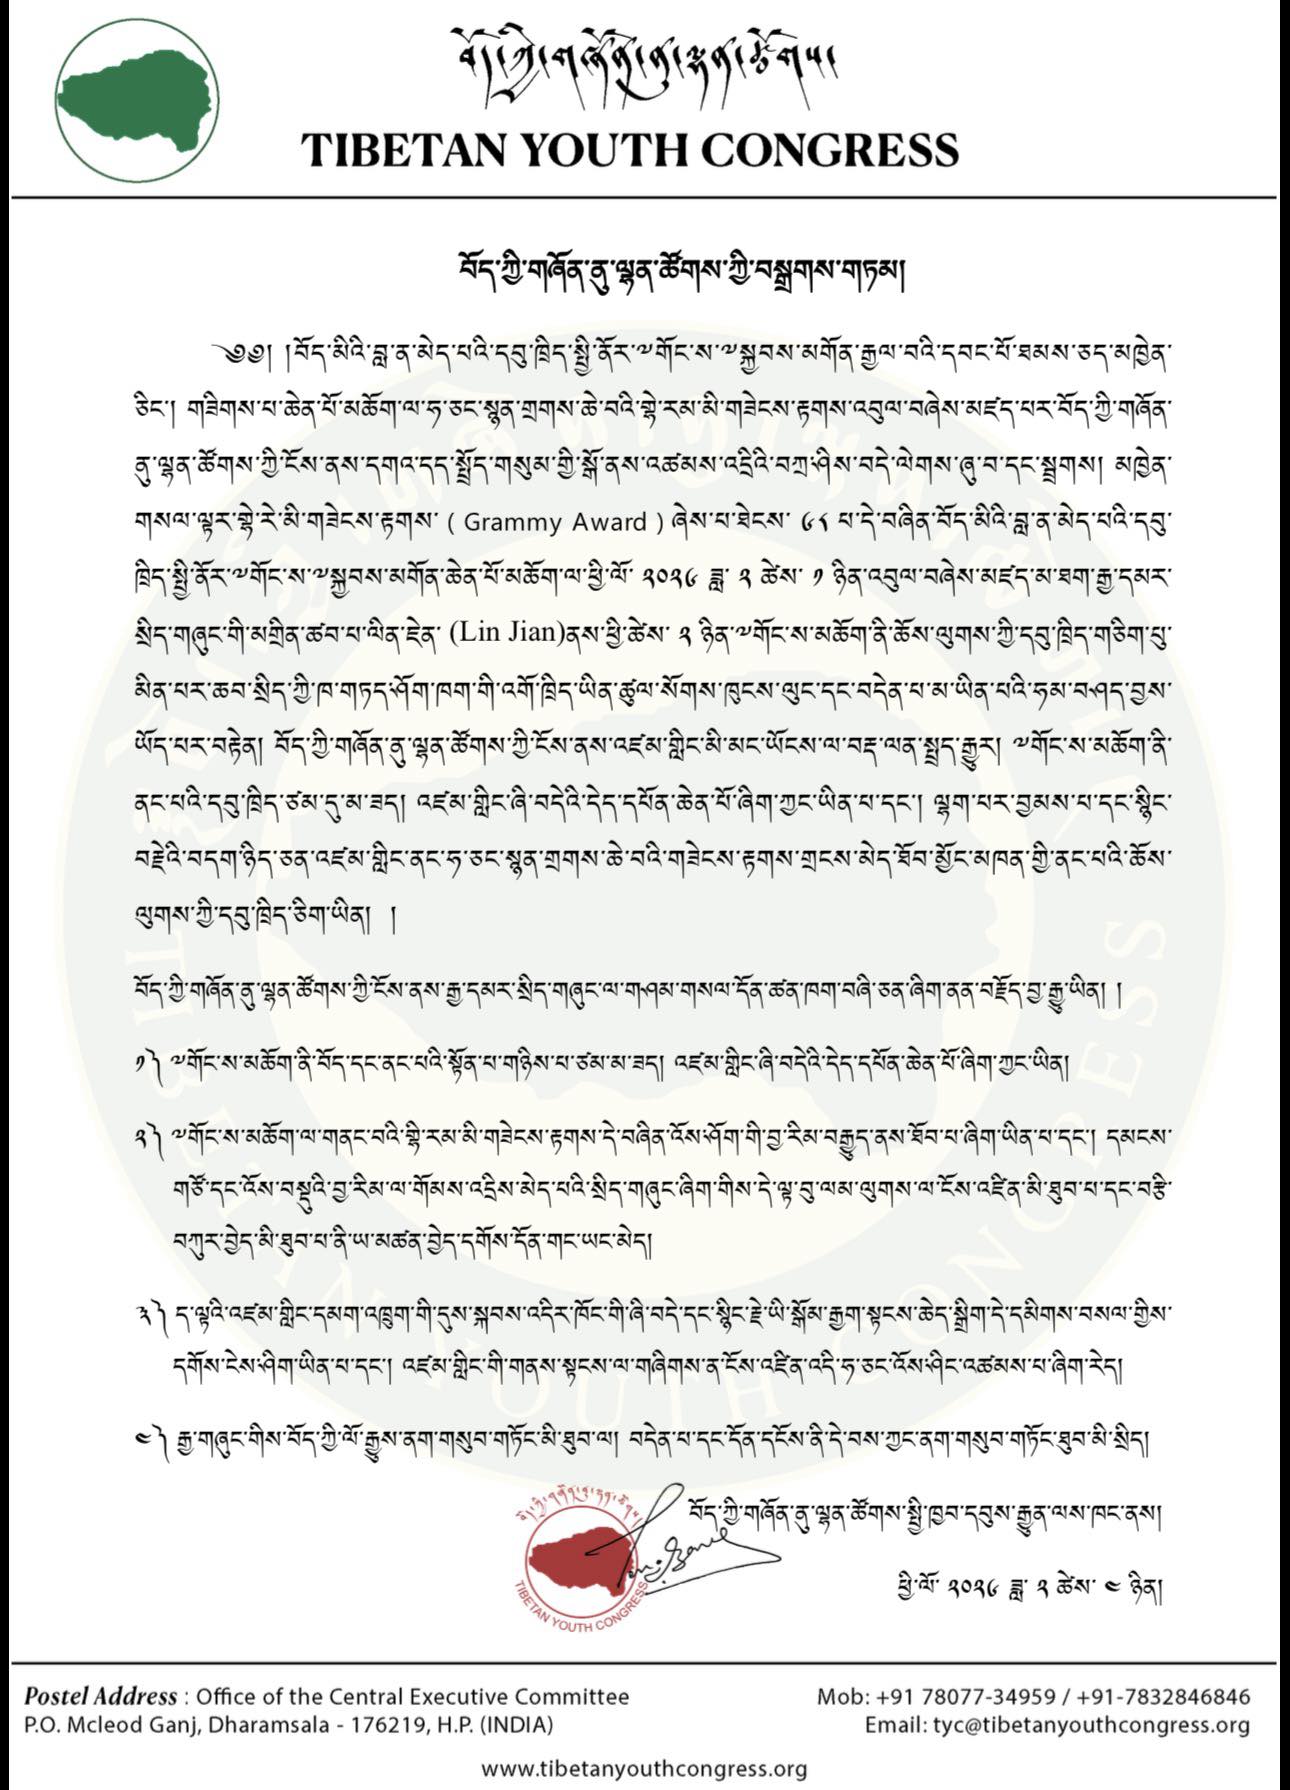 བོད་ཀྱི་གཞོན་ནུ་ལྷན་ཚོགས།
TIBETAN YOUTH CONGRESS
བོད་ཀྱི་གཞོན་ནུ་ལྷན་ཚོགས་ཀྱི་བསྒྲགས་གཏམ།
༄༅། །བོད་མིའི་བླ་ན་མེད་པའི་དབུ་ཁྲིད་སྤྱི་ནོར་༸གོང་ས་༸སྐྱབས་མགོན་རྒྱལ་བའི་དབང་པོ་ཐམས་ཅད་མཁྱེན་
ཅིང་། གཟིགས་པ་ཆེན་པོ་མཆོག་ལ་ཧ་ཅང་སྙན་གྲགས་ཆེ་བའི་གྷེ་རམ་མི་གཟེངས་རྟགས་འབུལ་བཞེས་མཛད་པར་བོད་ཀྱི་གཞོན་
ནུ་ལྷན་ཚོགས་ཀྱི་ངོས་ནས་དགའ་དད་སྤྲོད་གསུམ་གྱི་སྒོ་ནས་འཚམས་འདྲིའི་བཀྲ་ཤིས་བདེ་ལེགས་ཞུ་བ་དང་སྦྲགས། མཁྱེན་
གསལ་ལྟར་གྷེ་རེ་མི་གཟེངས་རྟགས་ ( Grammy Award ) ཞེས་པ་ཐེངས་ ༦༨ པ་དེ་བཞིན་བོད་མིའི་བླ་ན་མེད་པའི་དབུ་
ཁྲིད་སྤྱི་ནོར་༸གོང་ས་༸སྐྱབས་མགོན་ཆེན་པོ་མཆོག་ལ་ཕྱི་ལོ་ ༢༠༢༦ ཟླ་ ༢ ཚེས་ ༡ ཉིན་འབུལ་བཞེས་མཛད་མ་ཐག་རྒྱ་དམར་
སྲིད་གཞུང་གི་མགྲིན་ཚབ་པ་ལིན་ཇེན་ (Lin Jian)ནས་ཕྱི་ཚེས་ ༢ ཉིན་༸གོང་ས་མཆོག་ནི་ཆོས་ལུགས་ཀྱི་དབུ་ཁྲིད་གཅིག་པུ་
མིན་པར་ཆབ་སྲིད་ཀྱི་ཁ་གཏད་ཤོག་ཁག་གི་འགོ་ཁྲིད་ཡིན་ཚུལ་སོགས་ཁུངས་ལུང་དང་བདེན་པ་མ་ཡིན་པའི་ཧམ་བཤད་བྱས་
ཡོད་པར་བརྟེན། བོད་ཀྱི་གཞོན་ནུ་ལྷན་ཚོགས་ཀྱི་ངོས་ནས་འཛམ་གླིང་མི་མང་ཡོངས་ལ་བརྡ་ལན་སྤྲད་རྒྱུར། ༸གོང་ས་མཆོག་ནི་
ནང་པའི་དབུ་ཁྲིད་ཙམ་དུ་མ་ཟད། འཛམ་གླིང་ཞི་བདེའི་དེད་དཔོན་ཆེན་པོ་ཞིག་ཀྱང་ཡིན་པ་དང་། ལྷག་པར་བྱམས་པ་དང་སྙིང་
བརྩེའི་བདག་ཉིད་ཅན་འཛམ་གླིང་ནང་ཧ་ཅང་སྙན་གྲགས་ཆེ་བའི་གཟེངས་རྟགས་གྲངས་མེད་ཐོབ་མྱོང་མཁན་གྱི་ནང་པའི་ཆོས་
ལུགས་ཀྱི་དབུ་ཁྲིད་ཅིག་ཡིན། །
བོད་ཀྱི་གཞོན་ནུ་ལྷན་ཚོགས་ཀྱི་ངོས་ནས་རྒྱ་དམར་སྲིད་གཞུང་ལ་གཤམ་གསལ་དོན་ཚན་ཁག་བཞི་ཅན་ཞིག་ནན་བརྗོད་བྱ་རྒྱུ་ཡིན། །
༡༽ ༸གོང་ས་མཆོག་ནི་བོད་དང་ནང་པའི་སྟོན་པ་གཉིས་པ་ཙམ་མ་ཟད། འཛམ་གླིང་ཞི་བདེའི་དེད་དཔོན་ཆེན་པོ་ཞིག་ཀྱང་ཡིན།
༢༽ ༸གོང་ས་མཆོག་ལ་གནང་བའི་གྷི་རམ་མི་གཟེངས་རྟགས་དེ་བཞིན་འོས་ཤོག་གི་བྱ་རིམ་བརྒྱུད་ནས་ཐོབ་པ་ཞིག་ཡིན་པ་དང་། དམངས་
གཙོ་དང་འོས་བསྡུའི་བྱ་རིམ་ལ་གོམས་འདྲིས་མེད་པའི་སྲིད་གཞུང་ཞིག་གིས་དེ་ལྟ་བུ་ལམ་ལུགས་ལ་ངོས་འཛིན་མི་ཐུབ་པ་དང་བརྩི་
བཀུར་བྱེད་མི་ཐུབ་པ་ནི་ཡ་མཚན་བྱེད་དགོས་དོན་གང་ཡང་མེད།
༣༽ ད་ལྟའི་འཛམ་གླིང་དམག་འཁྲུག་གི་དུས་སྐབས་འདིར་ཁོང་གི་ཞི་བདེ་དང་སྙིང་རྗེ་ཡི་སྒོམ་རྒྱག་སྟངས་ཆེད་སྒྲིག་དེ་དམིགས་བསལ་གྱིས་
དགོས་ངེས་ཤིག་ཡིན་པ་དང་། འཛམ་གླིང་གི་གནས་སྟངས་ལ་གཞིགས་ན་ངོས་འཛིན་འདི་ཧ་ཅང་འོས་ཤིང་འཚམས་པ་ཞིག་རེད།
༤༽ རྒྱ་གཞུང་གིས་བོད་ཀྱི་ལོ་རྒྱུས་ནག་གསུབ་གཏོང་མི་ཐུབ་ལ། བདེན་པ་དང་དོན་དངོས་ནི་དེ་བས་ཀྱང་ནག་གསུབ་གཏོང་ཐུབ་མི་སྲིད།
བོད་ཀྱི་གཞོན་ནུ་ལྷན་ཚོགས་སྤྱི་ཁྱབ་དབུས་རྒྱུན་ལས་ཁང་ནས།
ཕྱི་ལོ་ ༢༠༢༦ ཟླ་ ༢ ཚེས་ ༤ ཉིན།
བོད་ཀྱི་གཞོན་ནུ་ལྷན་ཚོགས།
TIBETAN YOUTH CONGRESS
Postel Address : Office of the Central Executive Committee
P.O. Mcleod Ganj, Dharamsala - 176219, H.P. (INDIA)
Mob: +91 78077-34959 / +91-7832846846
Email: tyc@tibetanyouthcongress.org
www.tibetanyouthcongress.org